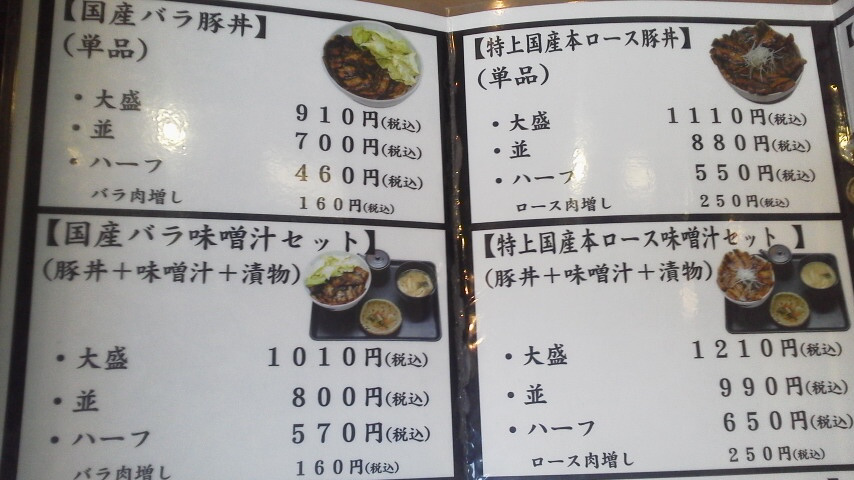 【国産バラ豚丼】
(単品)
・大盛 910円(税込)
・並 700円(税込)
・ハーフ 460円(税込)
バラ肉増し 160円(税込)
【国産バラ味噌汁セット】
(豚丼＋味噌汁＋漬物)
・大盛 1010円(税込)
・並 800円(税込)
・ハーフ 570円(税込)
バラ肉増し 160円(税込)
【特上国産本ロース豚丼】
(単品)
・大盛 1110円(税込)
・並 880円(税込)
・ハーフ 550円(税込)
ロース肉増し 250円(税込)
【特上国産本ロース味噌汁セット】
(豚丼＋味噌汁＋漬物)
・大盛 1210円(税込)
・並 990円(税込)
・ハーフ 650円(税込)
ロース肉増し 250円(税込)